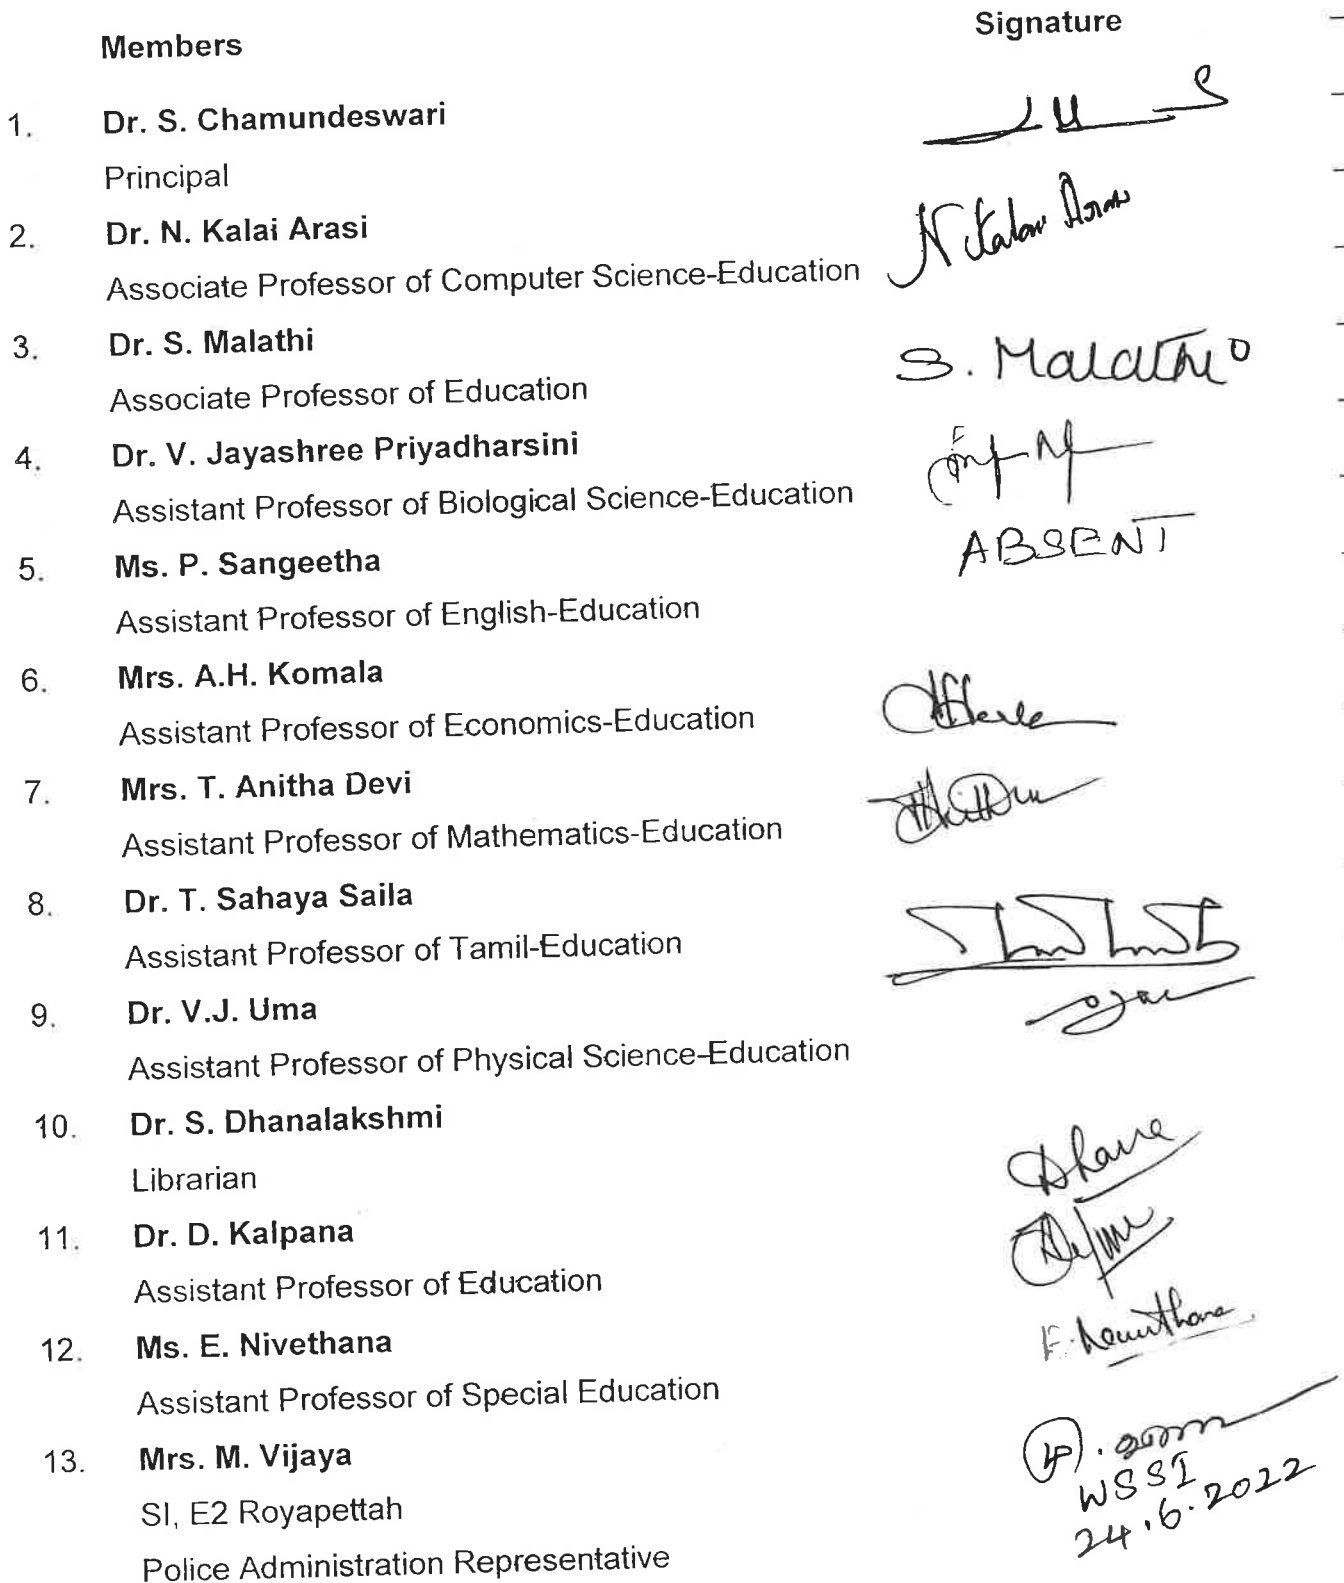 Members Signature
1. Dr. S. Chamundeswari
Principal
2. Dr. N. Kalai Arasi
Associate Professor of Computer Science-Education
3. Dr. S. Malathi S. Malathi
Associate Professor of Education
4. Dr. V. Jayashree Priyadharsini
Assistant Professor of Biological Science-Education
5. Ms. P. Sangeetha ABSENT
Assistant Professor of English-Education
6. Mrs. A.H. Komala
Assistant Professor of Economics-Education
7. Mrs. T. Anitha Devi
Assistant Professor of Mathematics-Education
8. Dr. T. Sahaya Saila
Assistant Professor of Tamil-Education
9. Dr. V.J. Uma
Assistant Professor of Physical Science-Education
10. Dr. S. Dhanalakshmi
Librarian
11. Dr. D. Kalpana
Assistant Professor of Education
12. Ms. E. Nivethana
Assistant Professor of Special Education
13. Mrs. M. Vijaya
SI, E2 Royapettah WSSI
Police Administration Representative 24.6.2022